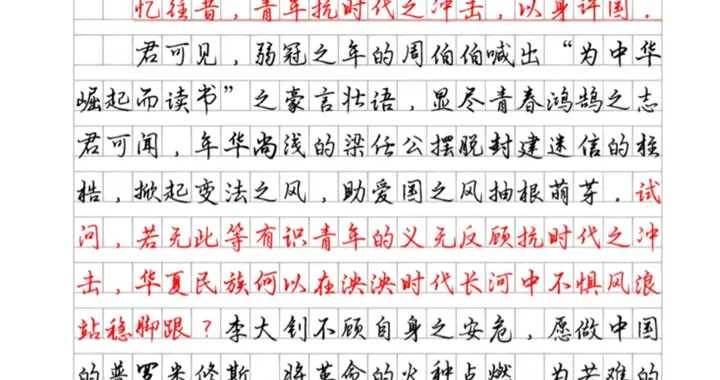 忆往昔，青年抗时代之冲击，以身许国．
君可见，弱冠之年的周伯伯喊出“为中华
崛起而读书”之豪言壮语，显尽青春鸿鹄之志
君可闻，年华尚浅的梁任公摆脱封建迷信的桎
梏，掀起变法之风，助爱国之风抽根萌芽．试
问，若无此等有识青年的义无反顾抗时代之冲
击，华夏民族何以在泱泱时代长河中不惧风浪
站稳脚跟？李大钊不顾自身之安危，愿做中国
的普罗米修斯，将革命的火种点燃，为苦难的